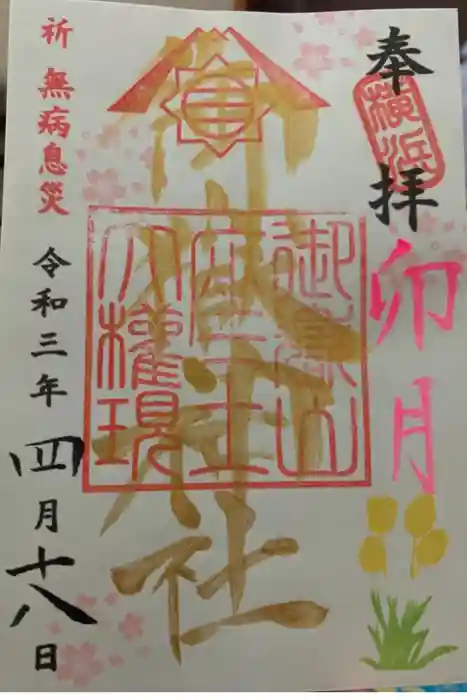 奉拝
横浜
卯月
御嶽神社
御嶽山
座王
大權現
祈 無病息災
令和三年四月十八日